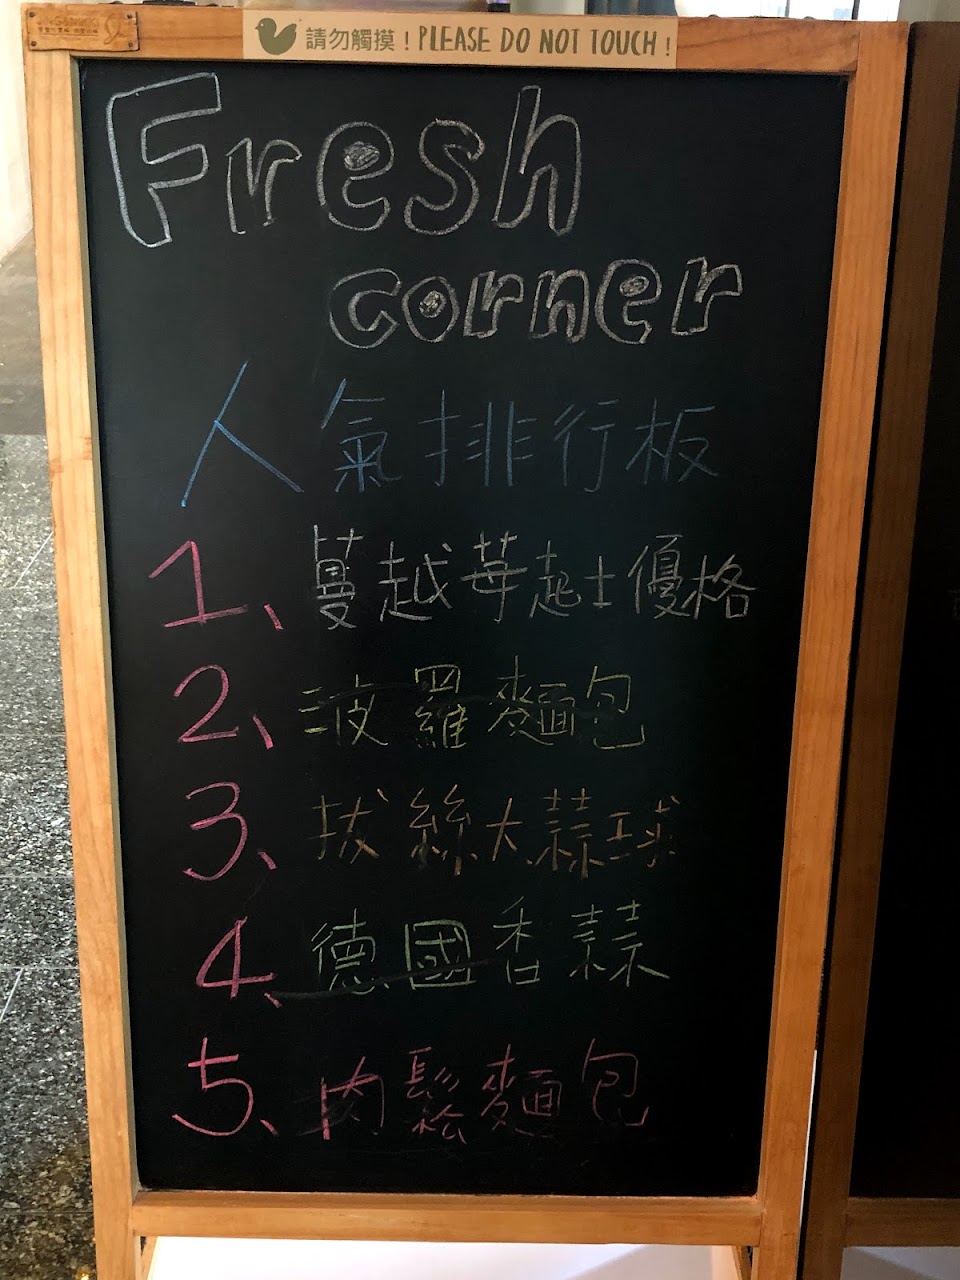 請勿觸摸！PLEASE DO NOT TOUCH！
Fresh
corner
人氣排行板
1、蔓越莓起士優格
2、波羅麵包
3、拔絲大蒜球
4、德國香蒜
5、肉鬆麵包